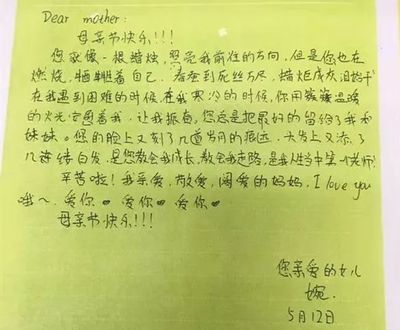 Dear mother:
母亲节快乐!!!
您就像一根蜡烛,照亮我前往的方向,但是您也在
燃烧,牺牲着自己。春蚕到死丝方尽,蜡炬成灰泪始干
在我遇到困难的时候,在我寒冷的时候,你用暖暖温暖
的火光安慰着我,让我振奋,您总是把最好的留给了我和
妹妹。您的脸上又刻了几道岁月的痕迹,头发上又添了
几许白发,是您教会我成长,教会我走路,是我人生当中第一个老师!
辛苦啦!我亲爱,敬爱,阔爱的妈妈,I love you
哦~爱你❤爱你❤爱你❤
母亲节快乐!!!
您亲爱的女儿
婉.
5月12日